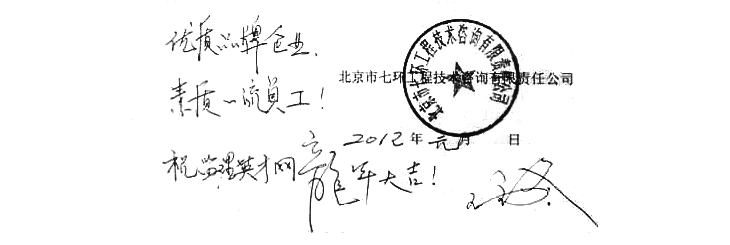 优质品牌企业，
素质一流员工！
祝监理英才网龍年大吉！
北京市七环工程技术咨询有限责任公司
北京市七环工程技术咨询有限责任公司
2012年元月 日